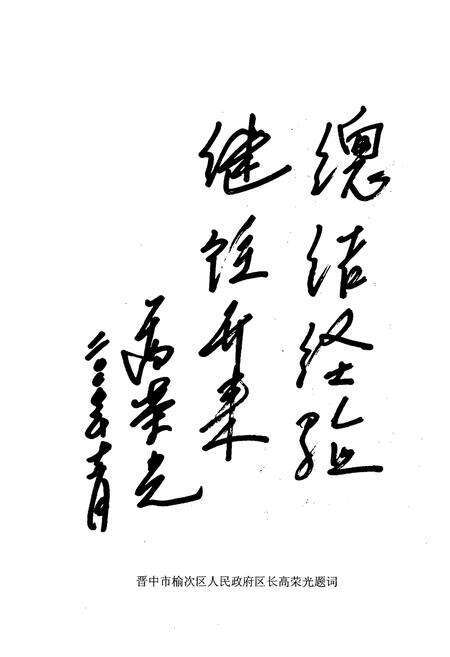 總结经验
继往开来
高荣光
二〇〇〇年十一月
晋中市榆次区人民政府区长高荣光题词